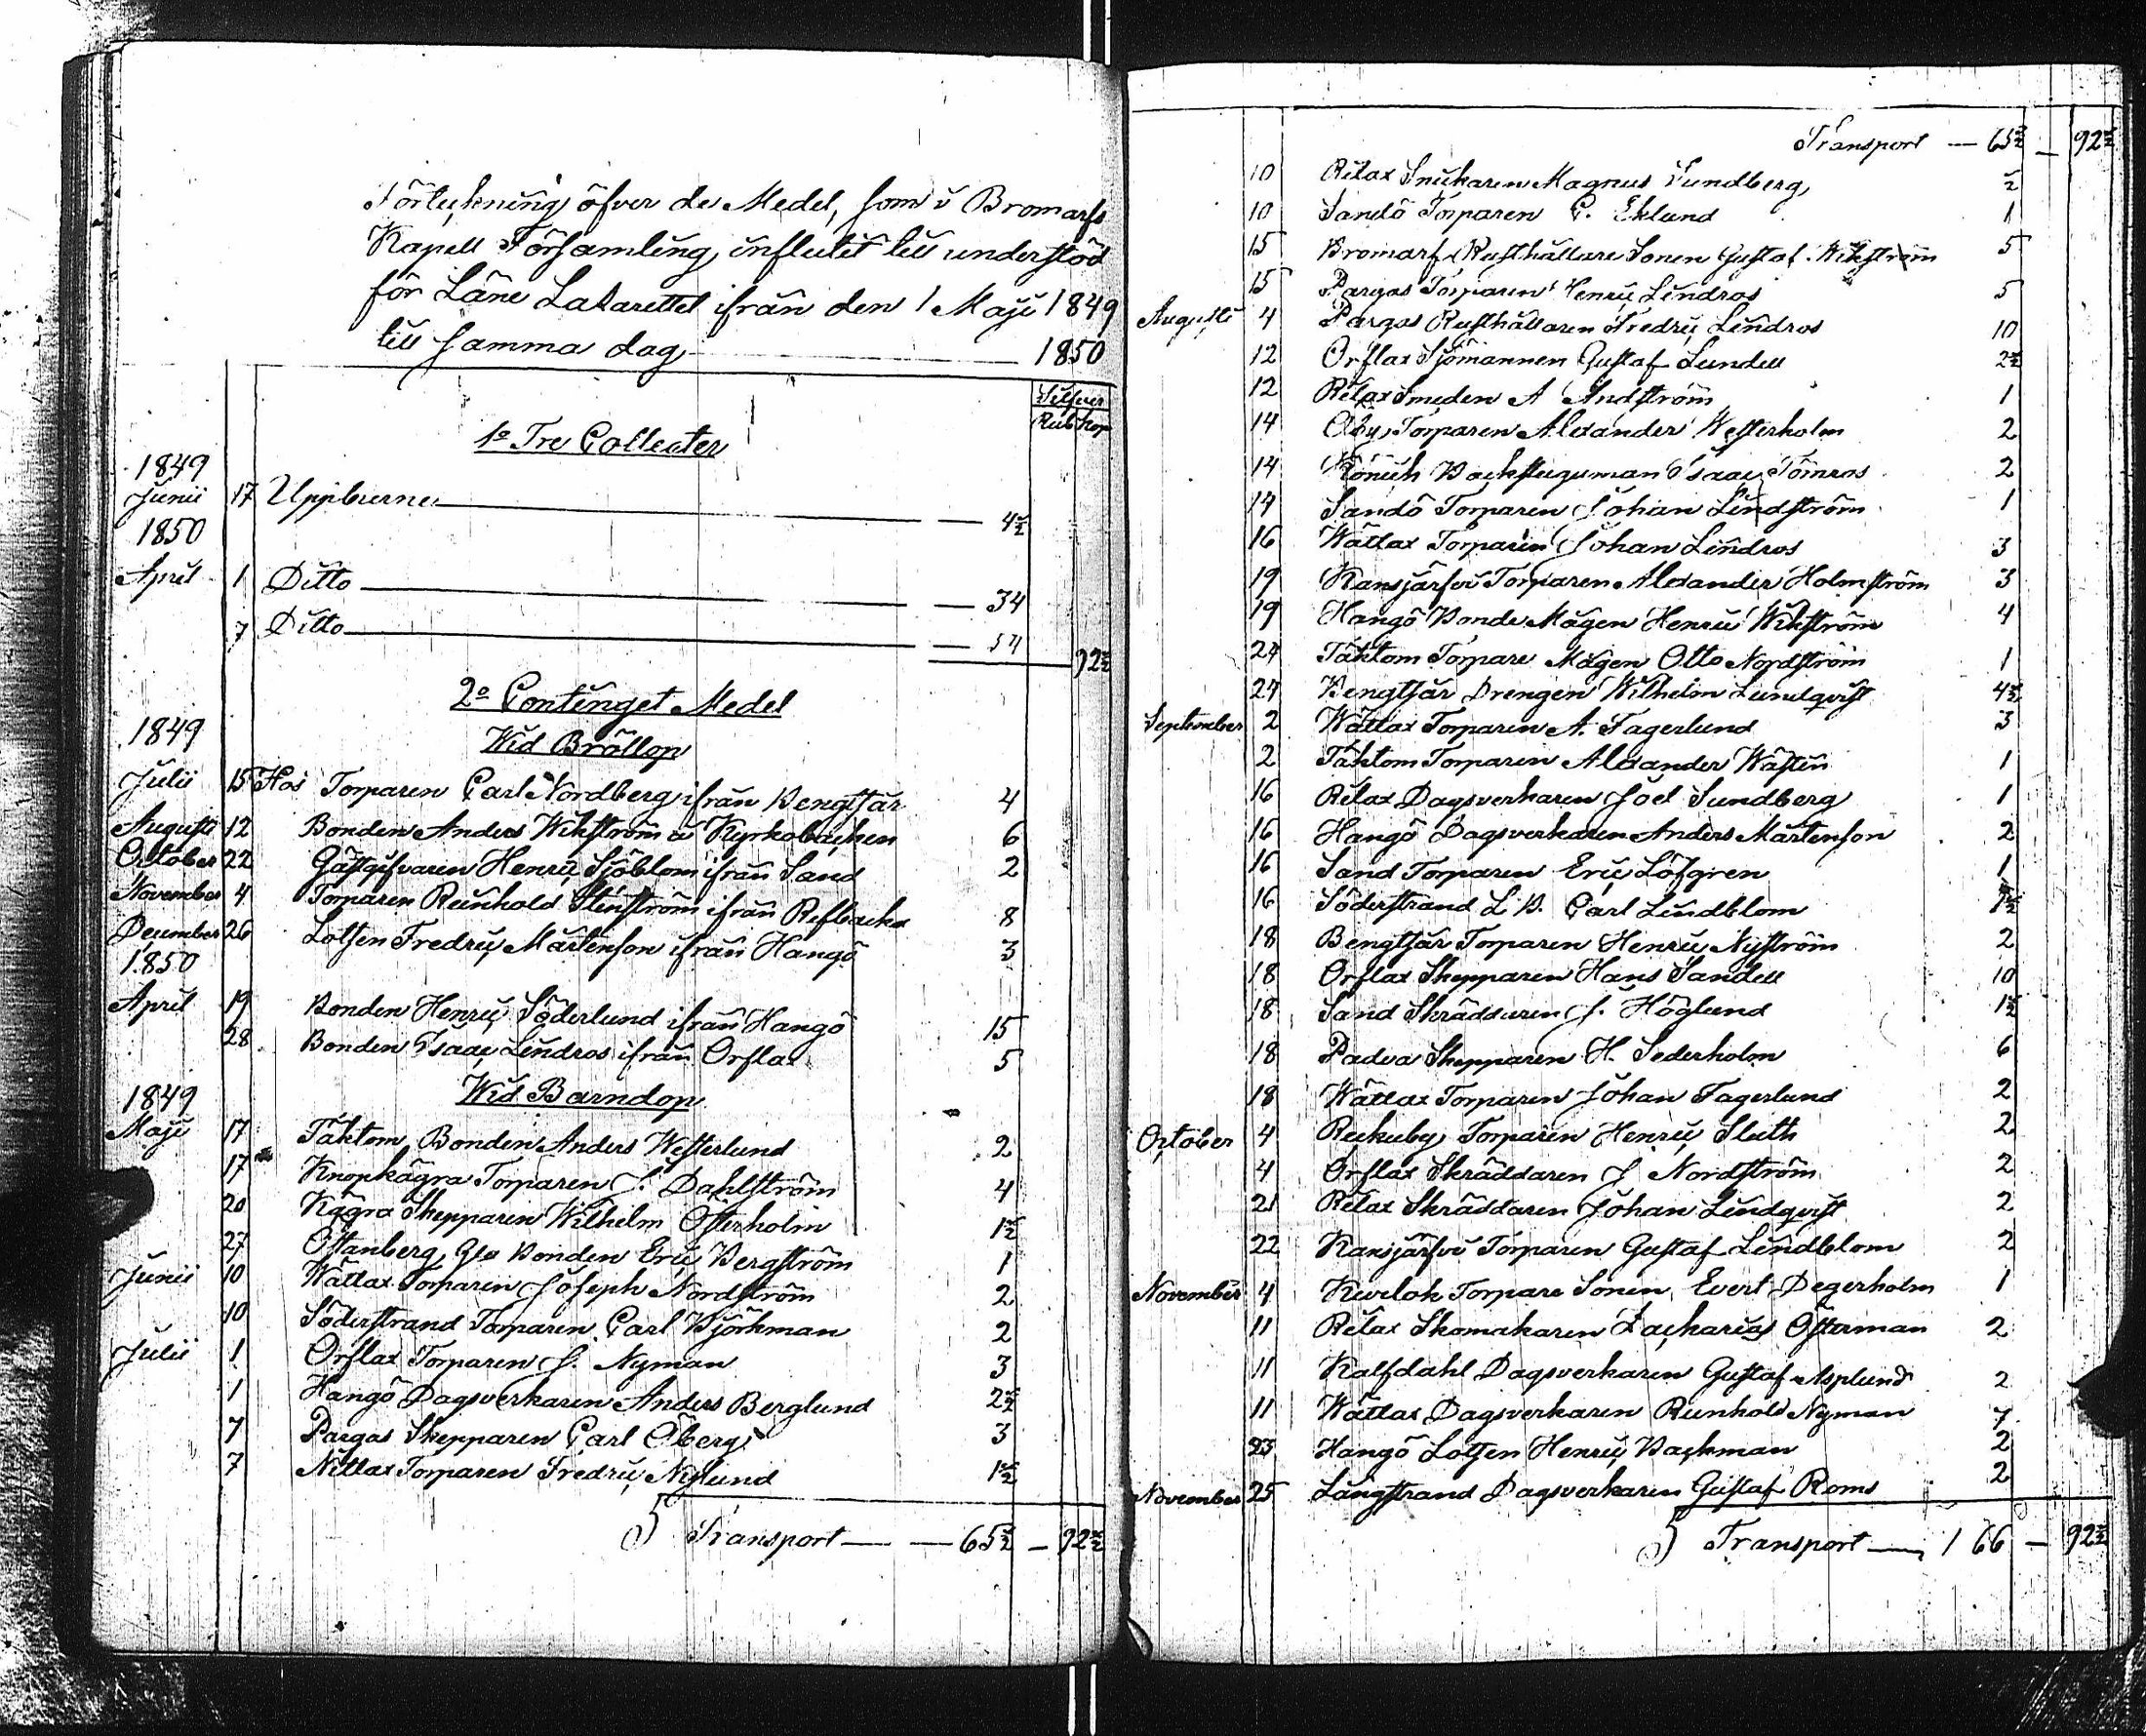 Förteckning öfver de Medel, som i Bromarfs
Kapell Församling, influtit till understöd
för Läne Lazarettet ifrån den 1 Maji 1849
till samma dag 1850
Silfver
Rub Kop
1o Tre Collecter
1849
Junii 17 Uppburne 4½
1850
April 1 Ditto 34
7 Ditto 54
92½
2o Continget Medel
Wid Bröllop
1849
Julii 15 Hos Torparen Carl Nordberg ifrån Bengtsår 4
Augusti 12 Bonden Anders Wikström å Kyrkobacken 6
October 22 Gästgifvaren Henric Sjöblom ifrån Sand 2
November 4 Torparen Reinhold Stenström ifrån Refbacka 8
December 26 Lotsen Fredric Mårtenson ifrån Hangö 3
1850
April 19 Bonden Henric Söderlund ifrån Hangö 15
28 Bonden Isaac Lindros ifrån Orflax 5
Wid Barndop
1849
Maji 17 Täktom Bonden Anders Westerlund 2
17 Knopkägra Torparen J. Dahlström 4
20 Kägra Skepparen Wilhelm Österholm 1½
27 Öftanberg Bonden Eric Bergström 1
Junii 10 Wättlax Torparen Joseph Nordström 2
10 Söderstrand Torparen Carl Björkman 2
Julii 1 Orflax Torparen J. Nyman 3
1 Hangö Dagsverkaren Anders Berglund 2½
7 Pargas Skepparen Carl Öberg 3
7 Nitlax Torparen Fredric Nylund 1½
Transport 65½ 92½
Transport 65½ 92½
10 Rilax Snickaren Magnus Sundberg ½
10 Sandö Torparen C. Eklund 1
15 Bromarf Rusthållare Sonen Gustaf Wikström 5
15 Pargas Torparen Henric Lindros 5
Augusti 4 Pargas Rusthållaren Fredric Lindros 10
12 Orflax Sjömannen Gustaf Lundell 2½
12 Rilax Smeden A Andström 1
14 Öby Torparen Alexander Westerholm 2
14 Backstuguman Isaac Tömros 2
14 Sandö Torparen Johan Lindström 1
16 Wättlax Torparen Johan Lindros 3
19 Kansjärfvi Torparen Alexander Holmström 3
19 Hangö Bonde Mågen Henric Wikström 4
24 Täktom Torpare Mågen Otto Nordström 1
27 Bengtsår Drengen Wilhelm Lundqvist 4½
September 2 Wättlax Torparen A. Fagerlund 3
2 Täktom Torparen Alexander Wästen 1
16 Rilax Dagsverkaren Joel Sundberg 1
16 Hangö Dagsverkaren Anders Mårtenson 2
16 Sand Torparen Eric Löfgren 1
16 Söderstrand L. B. Carl Lindblom 1½
18 Bengtsår Torparen Henric Nyström 2
18 Orflax Skepparen Hans Sandell 10
18 Sand Skräddaren J. Höglund 1½
18 Padva Skepparen H. Sederholm 6
18 Wättlax Torparen Johan Fagerlund 2
October 4 Torparen Henric Sluth 2
4 Orflax Skräddaren J Nordström 2
21 Rilax Skräddaren Johan Lindqvist 2
22 Kansjärfvi Torparen Gustaf Lindblom 2
November 4 Torpare Sonen Evert Degerholm 1
11 Rilax Skomakaren Zacharias Österman 2
11 Kalfdahl Dagsverkaren Gustaf Asplund 2
11 Wättlax Dagsverkaren Reinhold Nyman 7
23 Hangö Lotsen Henric Backman 2
November 25 Långstrand Dagsverkaren Gustaf Roms 2
Transport 166 92½